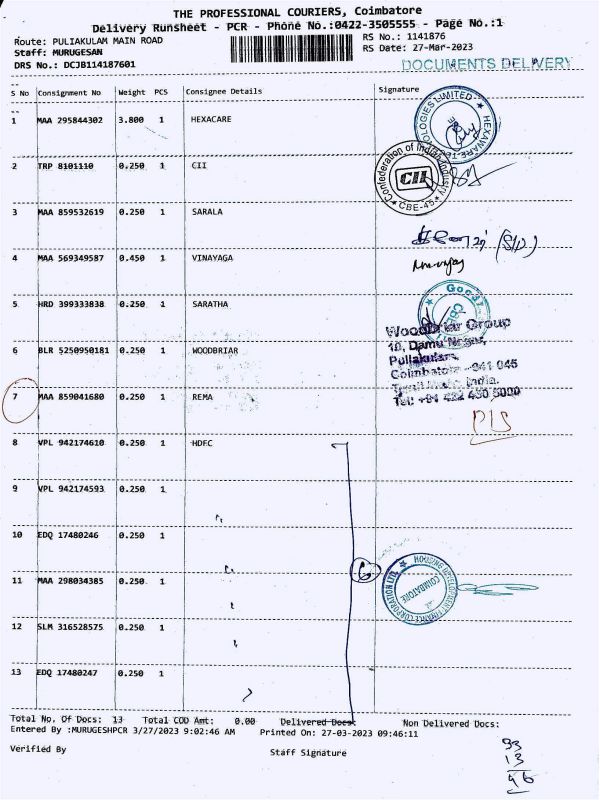 THE PROFESSIONAL COURIERS, Coimbatore
Delivery Runsheet - PCR - Phone No.:0422-3505555 - Page No.:1
Route: PULIAKULAM MAIN ROAD
RS No.: 1141876
Staff: MURUGESAN
RS Date: 27-Mar-2023
DRS No.: DCJB114187601
DOCUMENTS DELIVERY
S No Consignment No Weight PCS Consignee Details Signature
1 MAA 295844302 3.800 1 HEXACARE
2 TRP 8101110 0.250 1 CII
Confederation of Indian Industry
CII
CBE-45
3 MAA 859532619 0.250 1 SARALA
4 MAA 569349587 0.450 1 VINAYAGA
5 HRD 399333838 0.250 1 SARATHA
Woodbriar Group
6 BLR 5250950181 0.250 1 WOODBRIAR
10, Damu Nagar,
Puliakulam,
Coimbatore - 641 045
Tamil Nadu, India.
7 MAA 859041680 0.250 1 REMA
Tel: +91 422 430 5000
8 VPL 942174610 0.250 1 HDFC
9 VPL 942174593 0.250 1
10 EDQ 17480246 0.250 1
6
HOUSING DEVELOPMENT FINANCE CORPORATION LTD.
COIMBATORE
11 MAA 298034385 0.250 1
12 SLM 316528575 0.250 1
13 EDQ 17480247 0.250 1
Total No. Of Docs: 13 Total COD Amt: 0.00 Delivered Docs: Non Delivered Docs:
Entered By :MURUGESHPCR 3/27/2023 9:02:46 AM Printed On: 27-03-2023 09:46:11
Verified By Staff Signature
33
13
46